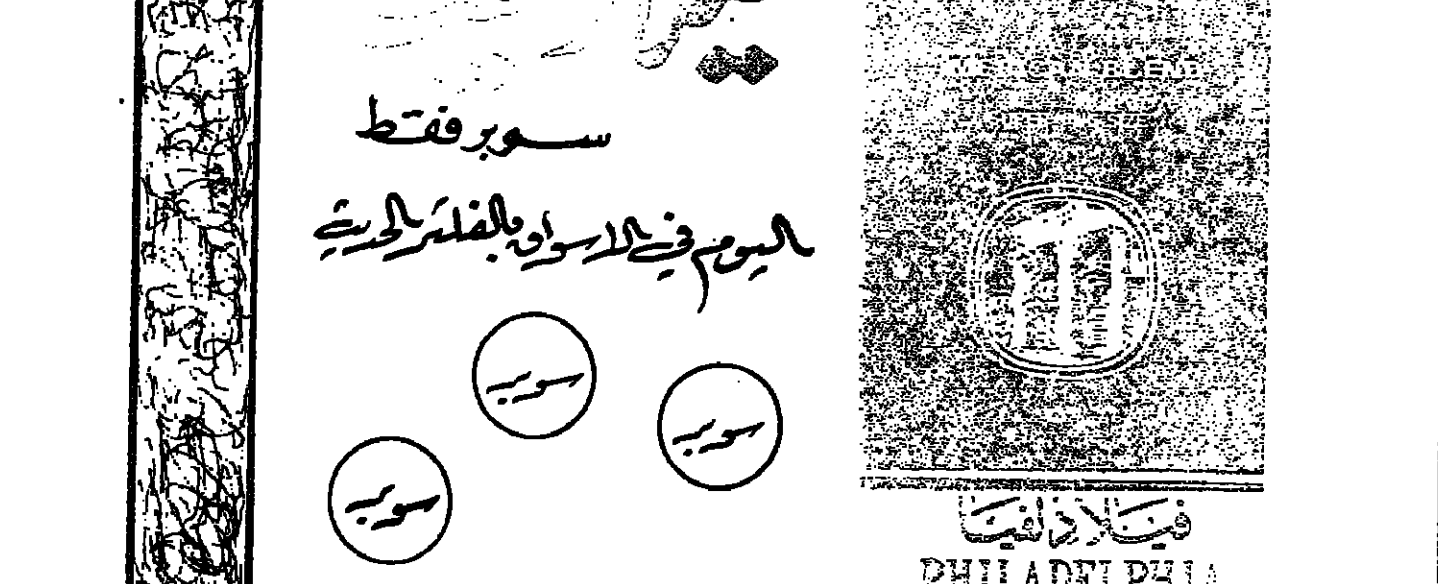 سوبر فقط
اليوم في الاسواق بالفلتر الحديث
سوبر
سوبر
سوبر
فيلادلفيا
PHILADELPHIA